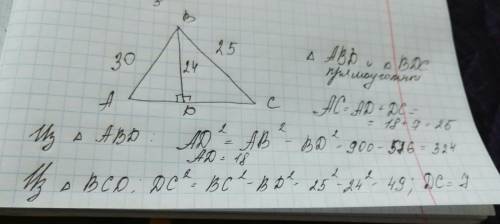 B
30
25
24
A
D
C
△ ABD и △ BDC
прямоугольн
AC = AD + DC =
= 18 + 7 = 25
Из △ ABD: AD² = AB² - BD² = 900 - 576 = 324
AD = 18
Из △ BCD: DC² = BC² - BD² = 25² - 24² = 49; DC = 7